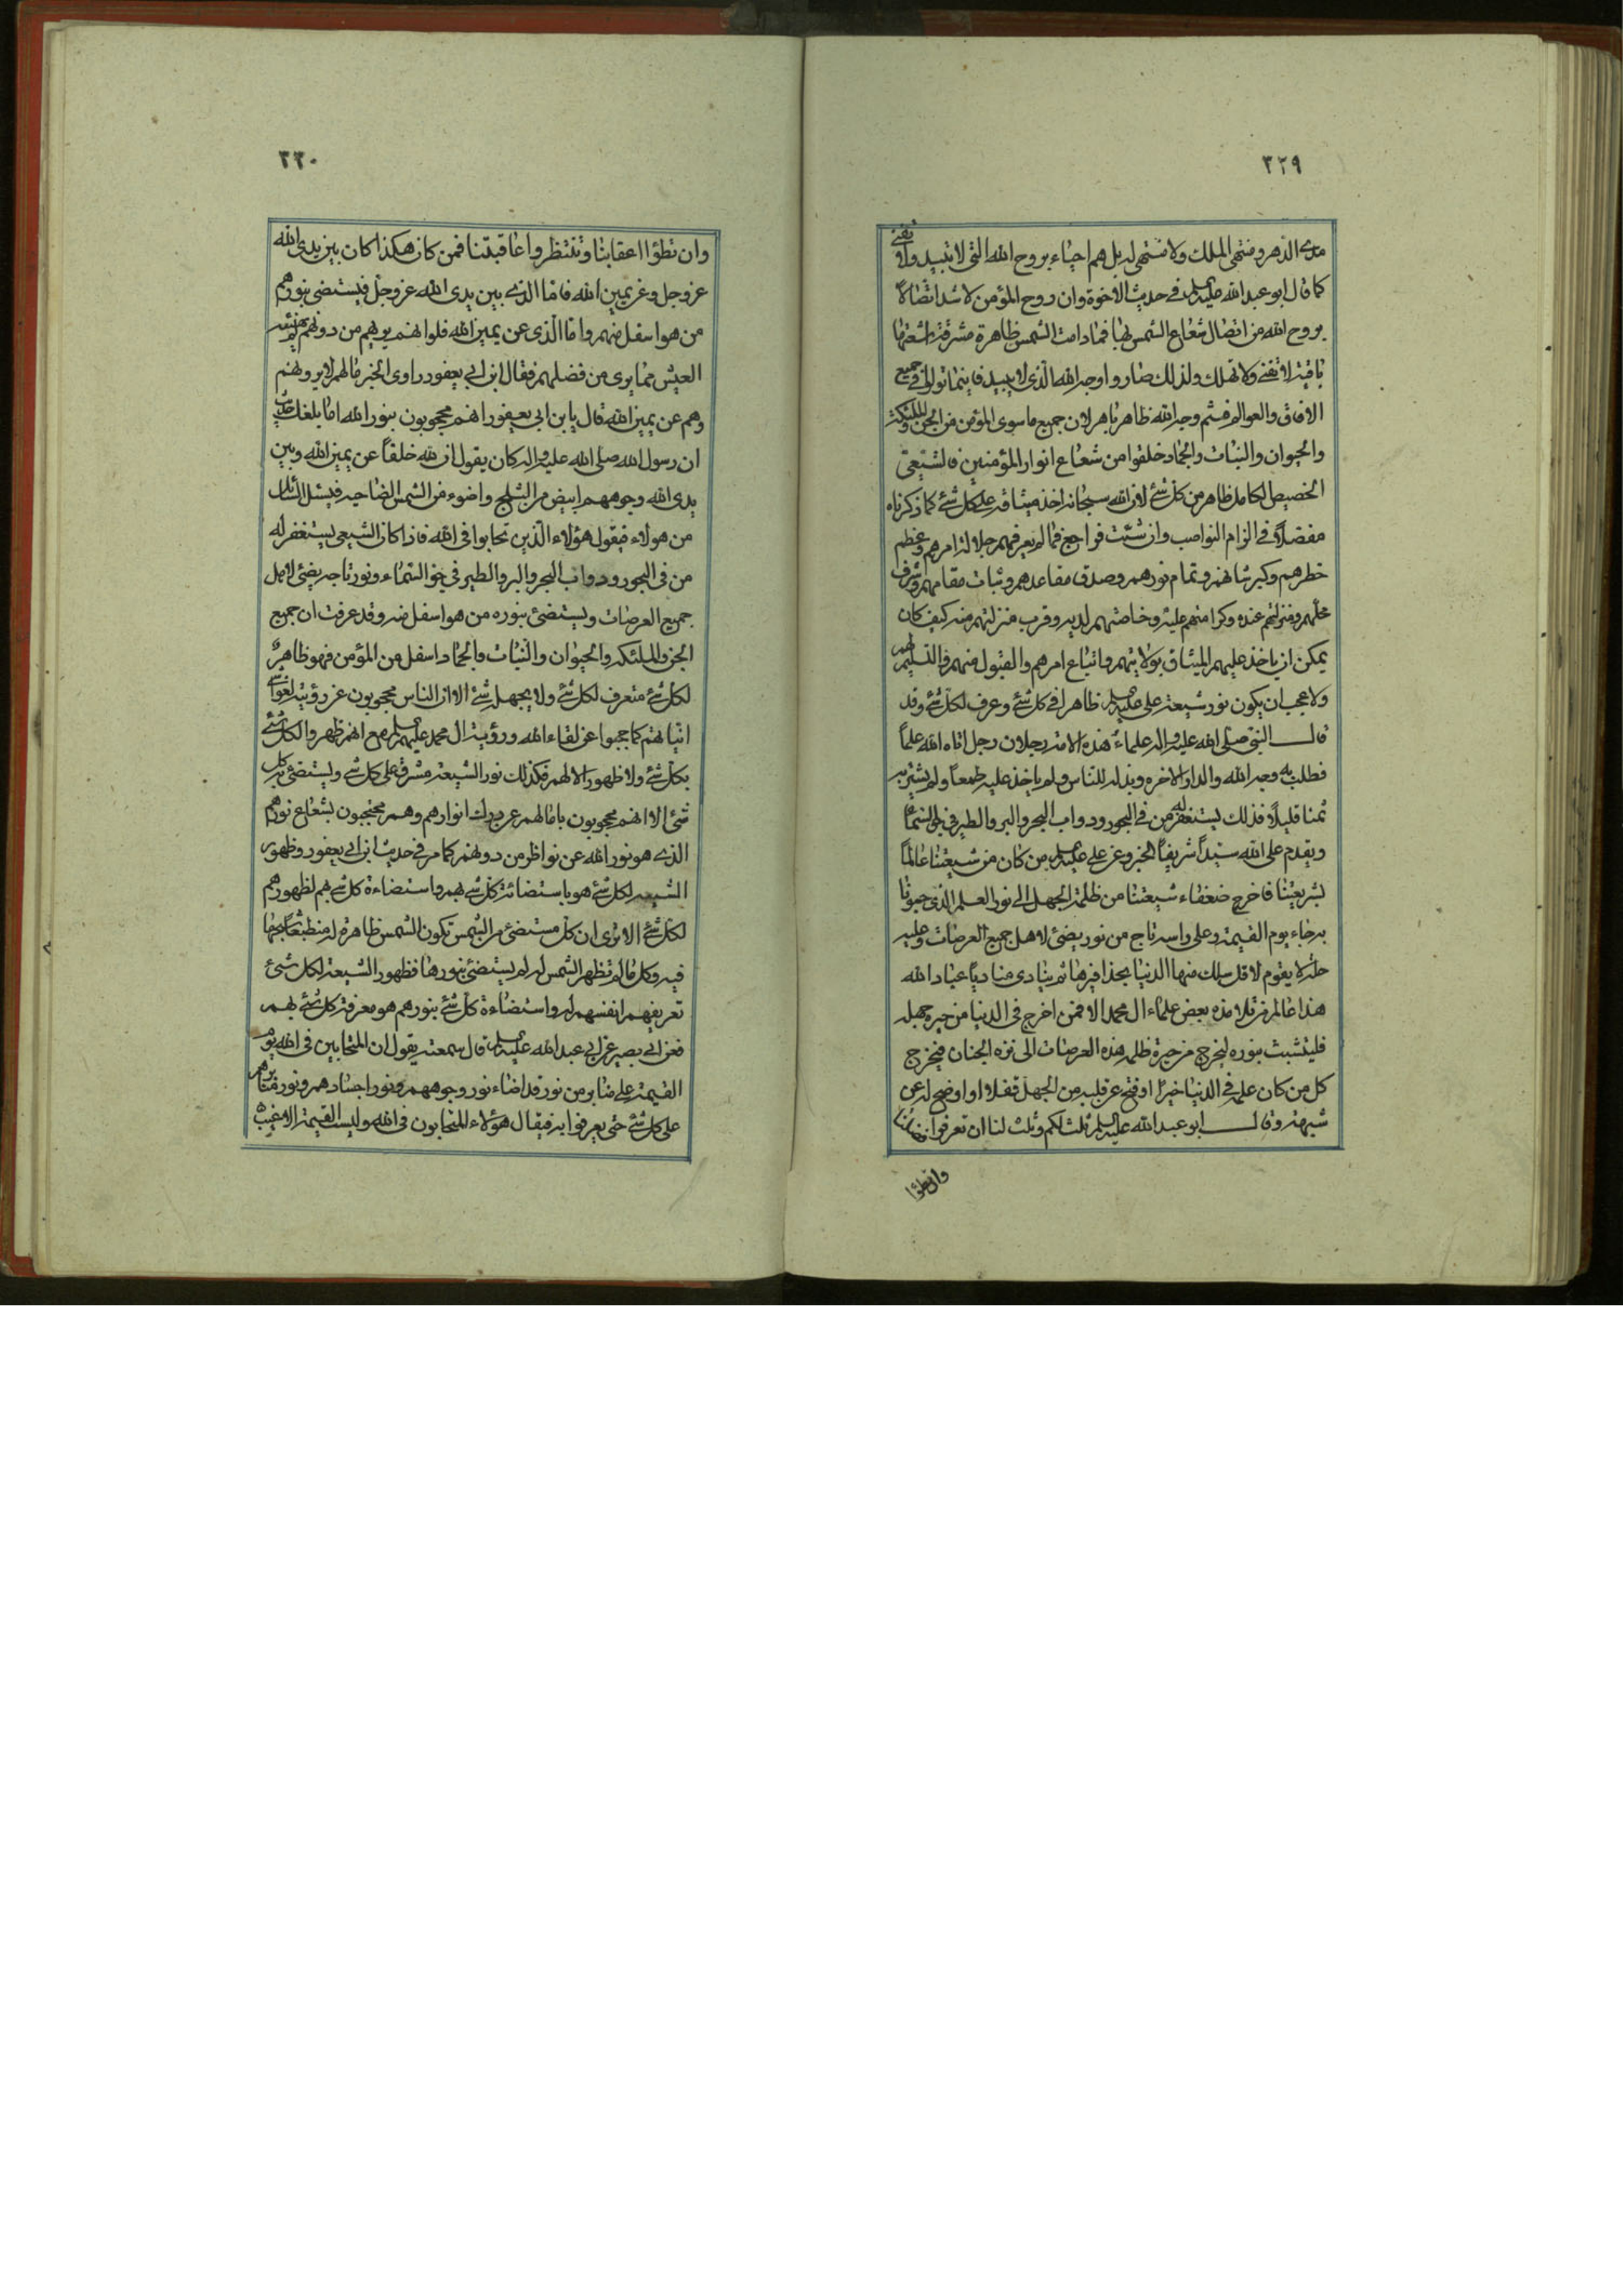 ٣٢٩
مدى الدهر ومنتهى الملك ولا منتهى له بل هم احياء بروح الله التى لا تبيد ولا تفنى
كما قال ابو عبدالله عليه السلم فى حديث الاخوة وان روح المؤمن لاشد اتصالاً
بروح الله من اتصال شعاع الشمس بها فمادامت الشمس ظاهرة مشرقة باشعتها
باقية لا تفنى ولا تهلك ولذلك صاروا وجه الله الذى لا يبيد فاينما تولوا فى جميع
الافاق والعوالم فثم وجه الله ظاهر باهر لان جميع ما سوى المؤمن من الجن والملئكة
والحيوان والنبات والجماد خلقوا من شعاع انوار المؤمنين فالشيعى
الخصيص الكامل ظاهر من كل شئ لان الله سبحانه اخذ ميثاقه على كل شئ كما ذكرناه
مفصلاً فى الزام النواصب وان شئت فراجع فما لم يعرفهم جلالة امرهم وعظم
خطرهم وكبر شانهم وتمام نورهم وصدق مقاعدهم وثبات مقامهم وشرف
محلهم ومنزلتهم عنده وكرامتهم عليه وخاصتهم لديه وقرب منزلتهم منه كيف كان
يمكن ان ياخذ عليهم الميثاق بولايتهم واتباع امرهم والقبول منهم والتسليم لهم
ولا عجب ان يكون نور شيعة على عليه السلم ظاهرا فى كل شئ وعرف لكل شئ وقد
قال النبى صلى الله عليه واله علماء هذه الامة رجلان رجل اتاه الله علماً
فطلب به وجه الله والدار الاخره وبذله للناس ولم ياخذ عليه طمعاً ولم يشتر به
ثمنا قليلاً فذلك يستغفر له من فى البحور ودواب البحر والبر والطير فى جو السماء
ويقدم على الله سيداً شريفاً الخبر وعن على عليه السلم من كان من شيعتنا عالماً
بشريعتنا فاخرج ضعفاء شيعتنا من ظلمة الجهل الى نور العلم الذى حبوناه
به جاء يوم القيمة وعلى راسه تاج من نور يضئ لاهل جميع العرصات وعليه
حلة لا يقوم لاقل سلك منها الدنيا بحذافيرها ثم ينادى مناد يا عباد الله
هذا عالم من تلامذه بعض علماء ال محمد الا فمن اخرجه فى الدنيا من حيرة جهله
فليتشبث بنوره ليخرجه من حيرة ظلمة هذه العرصات الى نزه الجنان فيخرج
كل من كان علمه فى الدنيا خيراً او فتح عن قلبه من الجهل قفلا او اوضح له عن
شبهة وقال ابو عبدالله عليه السلم ثلث لكم وثلث لنا ان تعرفوا فضلنا
وان تطؤا
٣٣٠
وان تطؤا اعقابنا وتنتظروا عاقبتنا فمن كان هكذا كان بين يدى الله
عز وجل وعن يمين الله فاما الذى بين يدى الله عز وجل فيستضئ بنورهم
من هو اسفل منهم واما الذى عن يمين الله فلو انهم يريهم من دونهم لم يهنئهم
العيش مما يرى من فضلهم فقال ابن ابى يعفور راوى الخبر ما لهم لا يرونهم
وهم عن يمين الله قال يابن ابى يعفور انهم محجوبون بنور الله اما بلغك حديث
ان رسول الله صلى الله عليه واله كان يقول ان لله خلقاً عن يمين الله وبين
يدى الله وجوههم ابيض من الثلج واضوء من الشمس الضاحيه فيسئل السائل
من هولاء فيقول هؤلاء الذين تحابوا فى الله فاذا كان الشيعى يستغفر له
من فى البحور ودواب البحر والبر والطير فى جو السماء ونور تاجه يضئ لاهل
جميع العرصات ويستضئ بنوره من هو اسفل منه وقد عرفت ان جميع
الجن والملئكه والحيوان والنبات والجماد اسفل من المؤمن فهو ظاهر
لكل شئ متعرف لكل شئ ولا يجهله شئ الا ان الناس محجوبون عن رؤيته لغواشى
انيّاتهم كما حجبوا عن لقاء الله ورؤية ال محمد عليهم السلم مع انهم ظهروا لكل شئ
بكل شئ ولا ظهور الا لهم فكذلك نور الشيعة مشرق على كل شئ ويستضئ به كل
شئ الا انهم محجوبون بامالهم عن درك انوارهم وهم محتجبون بشعاع نورهم
الذى هو نور الله عن نواظر من دونهم كما مر فى حديث ابن ابى يعفور وظهور
الشيعه لكل شئ هو باستضائة كل شئ بهم واستضاءة كل شئ بهم لظهورهم
لكل شئ الا ترى ان كل مستضئ من الشمس تكون الشمس ظاهرة له منطبعاً شبحها
فيه وكل ما لم تظهر الشمس له لم يستضئ بنورها فظهور الشيعة لكل شئ
تعريفهم انفسهم له واستضاءة كل شئ بنورهم هو معرفة كل شئ بهم
فعن ابى بصير عن ابى عبدالله عليه السلم قال سمعته يقول ان المتحابين فى الله يوم
القيمة على منابر من نور قد اضاء نور وجوههم ونور اجسادهم ونور منابرهم
على كل شئ حتى يعرفوا به فيقال هؤلاء المتحابون فى الله وليست القيمة الا مغيب